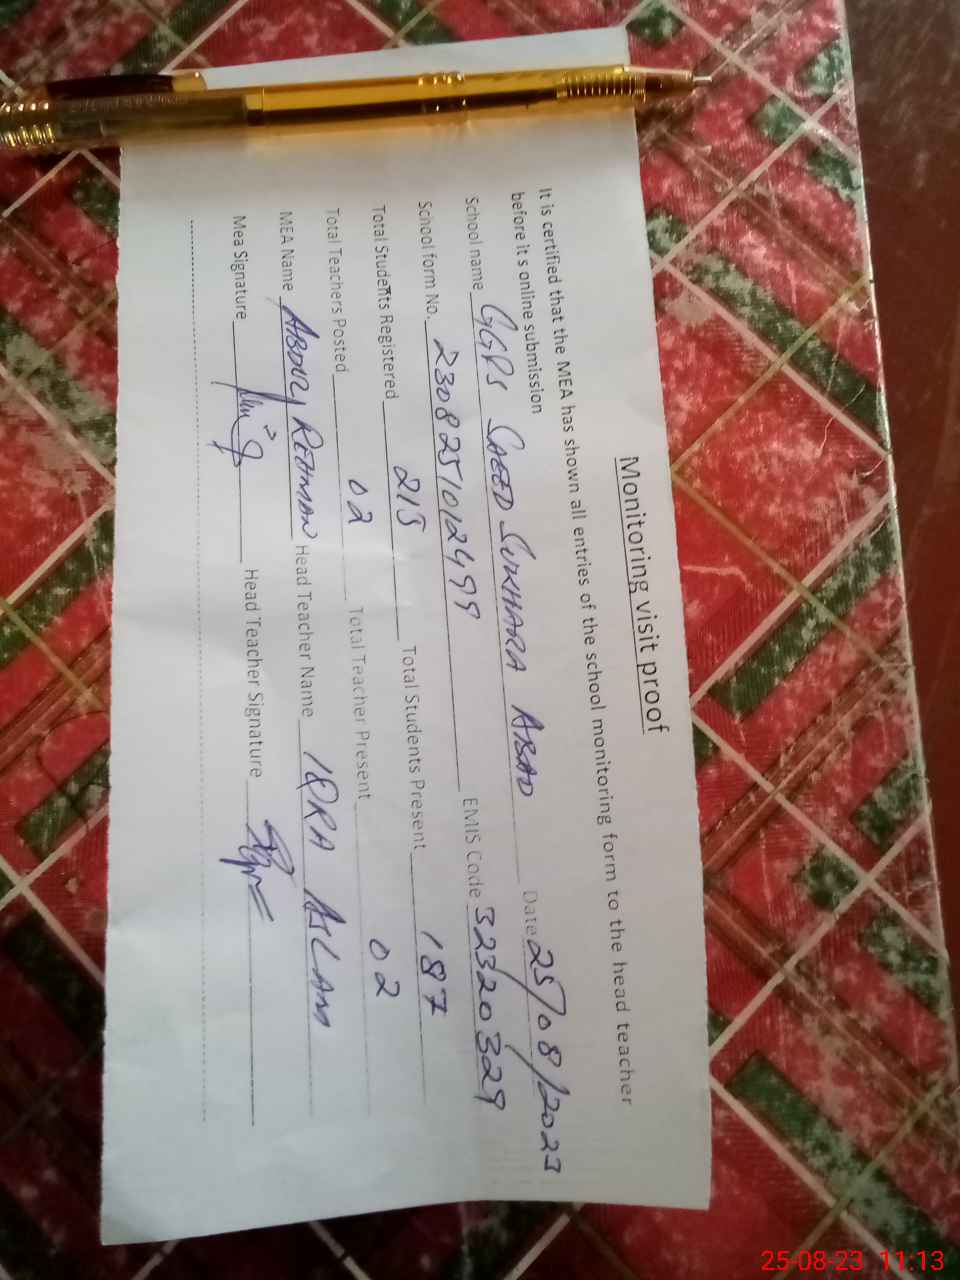 Monitoring visit proof
It is certified that the MEA has shown all entries of the school monitoring form to the head teacher
before it s online submission
School name GGPS SAEED SUKHARA ABAD Date 25/08/2023
School form No. 2308251012499 EMIS Code 32320329
Total Students Registered 215 Total Students Present 187
Total Teachers Posted 02 Total Teacher Present 02
MEA Name ABDUL REHMAN Head Teacher Name IQRA ASLAM
Mea Signature Head Teacher Signature
25-08-23 11:13